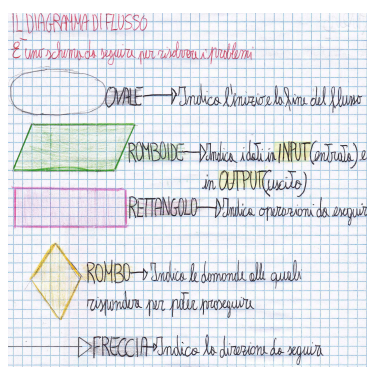 IL DIAGRAMMA DI FLUSSO
È uno schema da seguire per risolvere i problemi
OVALE → Indica l'inizio e la fine del flusso
ROMBOIDE → Indica i dati in INPUT (entrata) e
in OUTPUT (uscita)
RETTANGOLO → Indica operazioni da eseguire
ROMBO → Indica le domande alle quali
rispondere per poter proseguire
FRECCIA → Indica la direzione da seguire